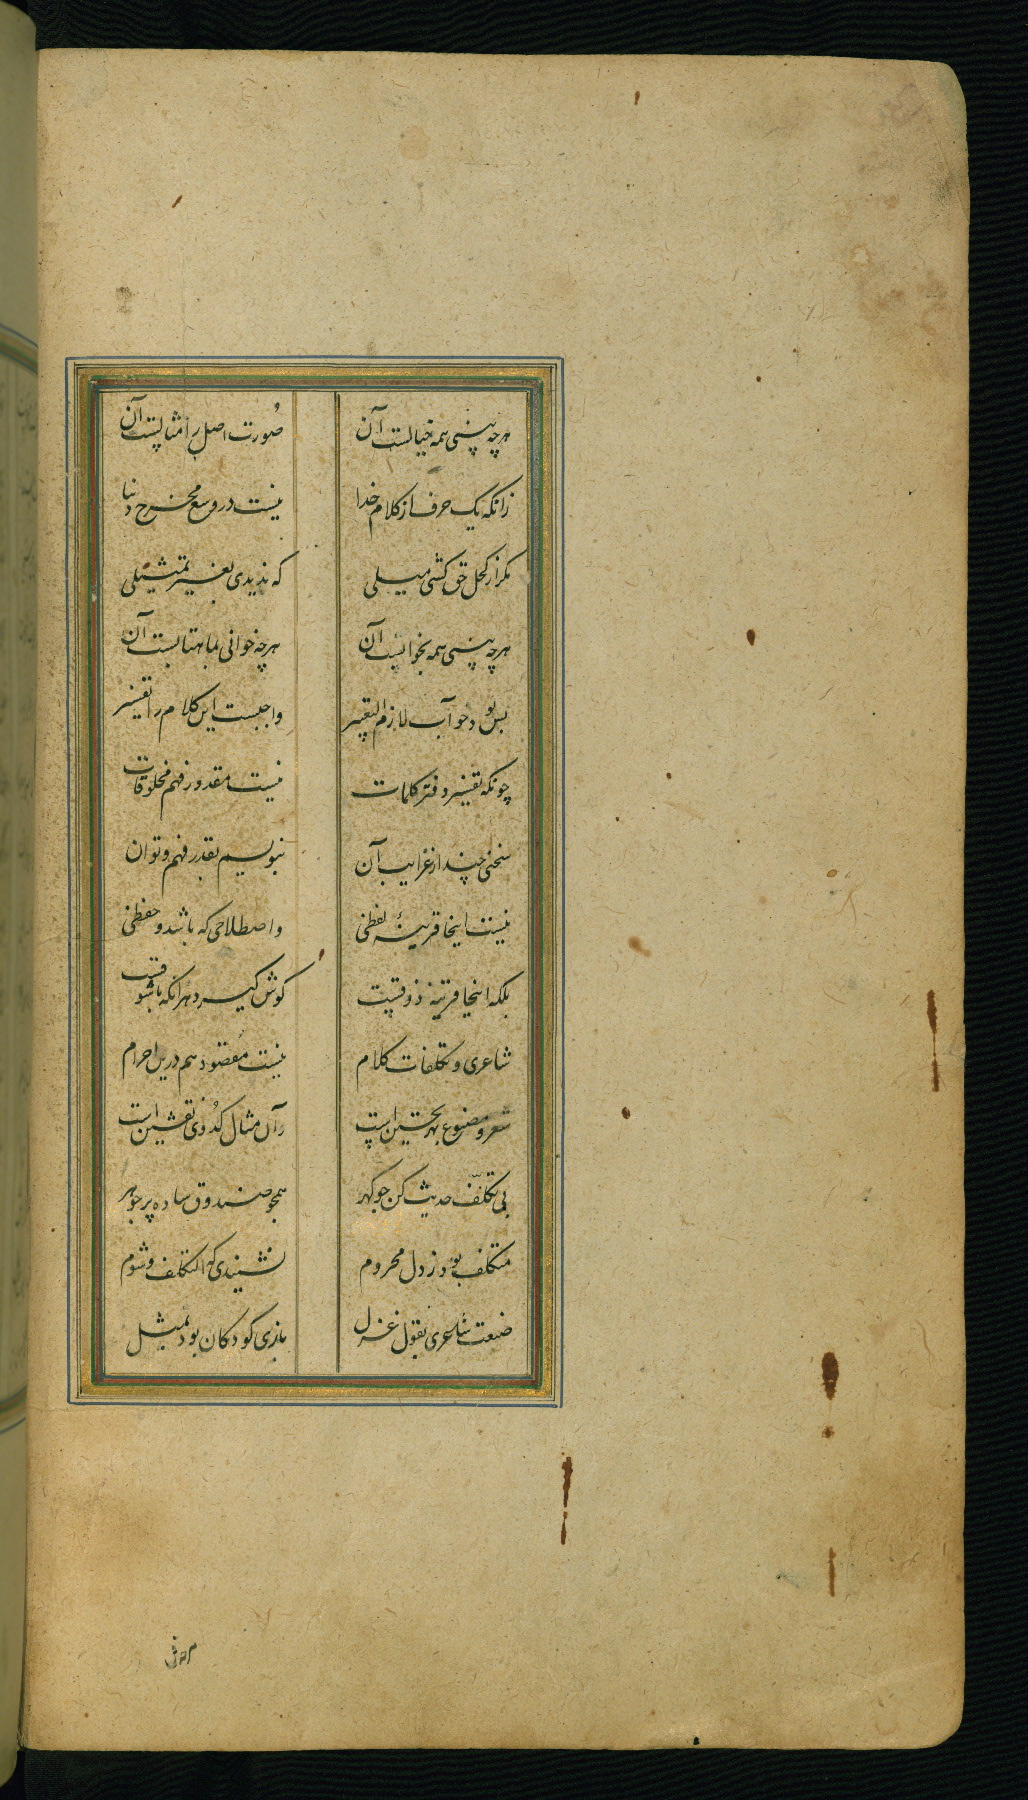 هرچه بینی همه خیالست آن صورت اصل را مثالست آن
زانکه یک حرف از کلام خدا نیست در وسع مخرج دنیا
مکر از کحل حق کشی میلی که ندیدی بغیر تمثیلی
هرچه بینی همه بخوابست آن هرچه خوانی بماهتابست آن
بس بود خواب لازم التعبیر واجبست این کلام را تفسیر
چونکه تفسیر دفتر کلمات نیست مقدور فهم مخلوقات
سخنی چند از غرایب آن بنویسم بقدر فهم و توان
نیست اینجا قرینهٔ لفظی و اصطلاحی که باشد و حفظی
بلکه اینجا قرینه ذوقیست کوش کیرد هرانکه باشوقست
شاعری و تکلفات کلام نیست مقصود هم درین احرام
شعر و مصنوع بهر تحسین است را آن مثال کدوی نقشین است
بی تکلف حدیث کن جو کهر همچو صندوق ساده پر جوهر
متکلف بود ز دل محروم نشنیدی که التکلف شوم
صنعت شاعری بقول غزل بازی کودکان بود بمثل